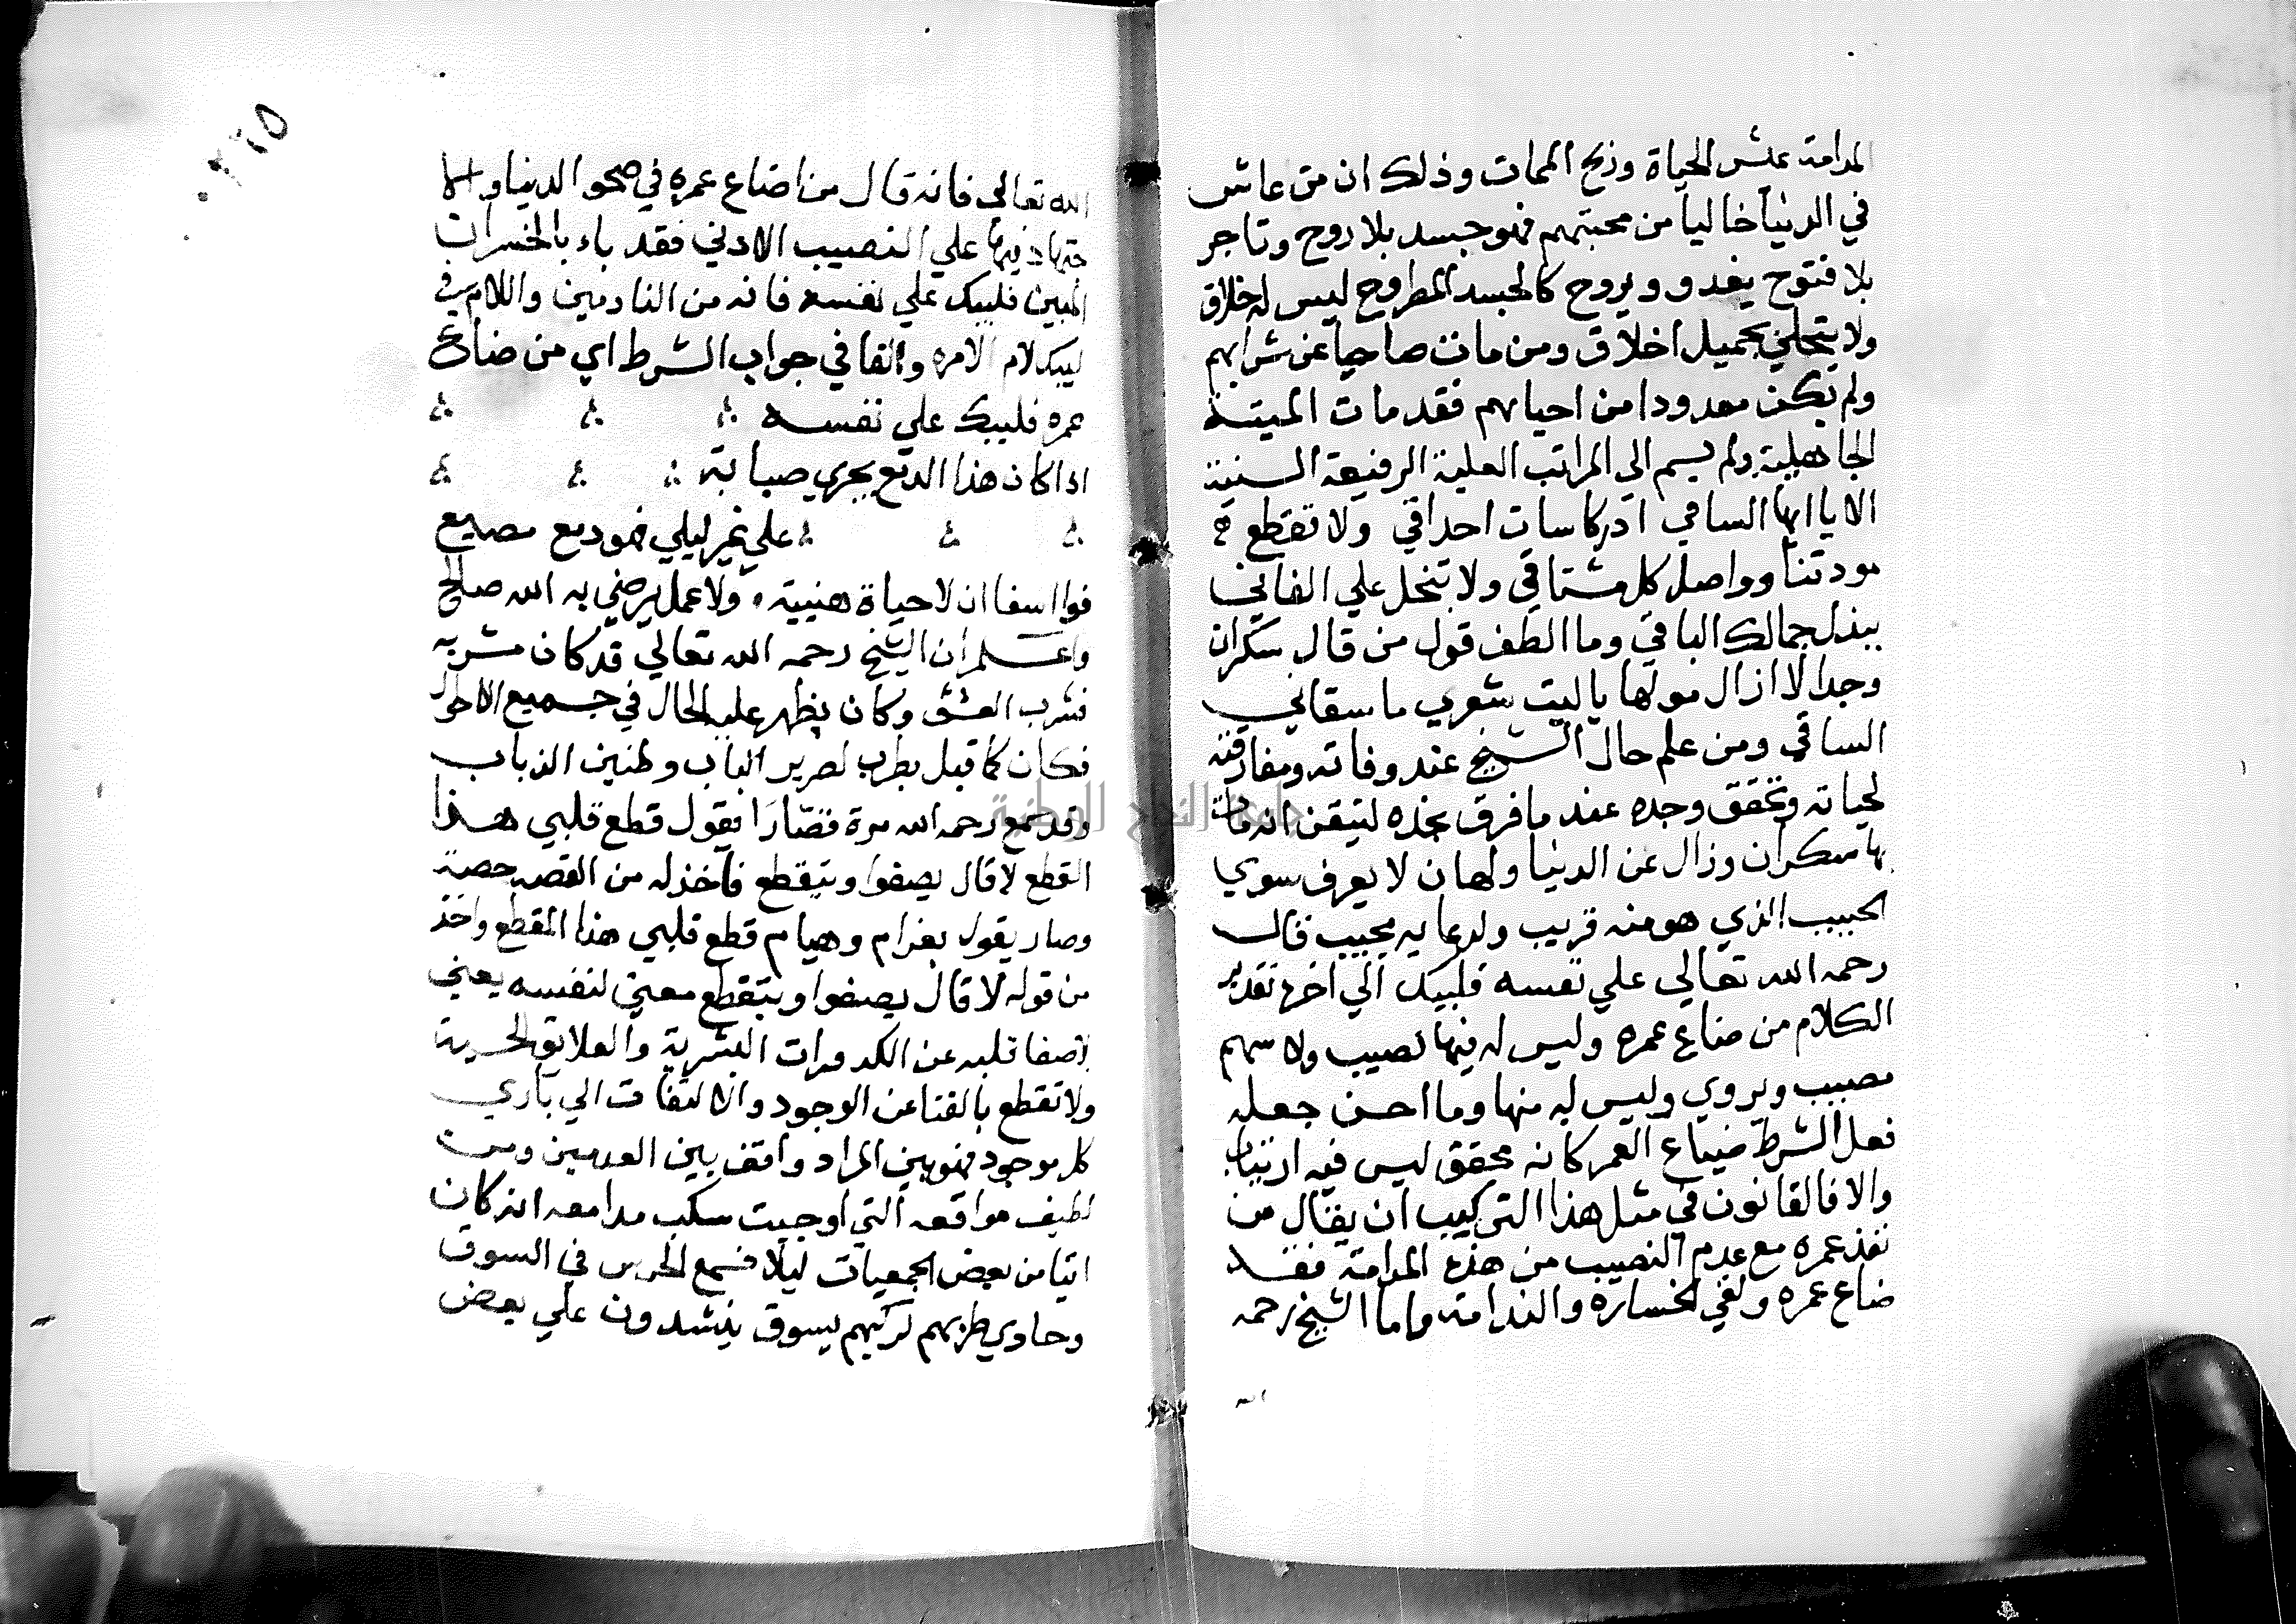 المدامة عيش الحياة وربح الممات وذلك ان من عاش
في الدنيا خاليا من محبتهم فهو جسد بلا روح وتاجر
بلا فتوح يغدو ويروح كالجسد المطروح ليس له خلاق
ولا يتحلي بجميل اخلاق ومن مات صاحيا عن شرابهم
ولم يكن معدودا من احيابهم فقد مات الميتة
الجاهلية ولم يسم الي المراتب العلية الرفيعة السنية
الا يا ايها الساقي ادر كاسات احداقي ولا تقطع
مودتنا وواصل كل مشتاقي ولا تبخل علي الفاني
ببذل جمالك الباقي وما الطف قول من قال سكران
وجدا لا ازال مولها يا ليت شعري ما سقاني
الساقي ومن علم حال الشيخ عند وفاته ومفارقته
لحياته وتحقق وجده عند ما فرق بجده ليتيقن انه مات
بها سكران وزال عن الدنيا ولهان لا يعرف سوي
الحبيب الذي هو منه قريب ولدعايه مجيب قال
رحمه الله تعالي علي نفسه فليبك الي اخره تقدير
الكلام من ضاع عمره وليس له فيها نصيب ولا سهم
مصيب ويروي وليس له منها وما احسن جعله
فعل الشرط ضياع العمر كانه محقق ليس فيه ارتياب
والا فالقانون في مثل هذا التركيب ان يقال من
نفذ عمره مع عدم النصيب من هذه المدامة فقد
ضاع عمره ولقي الخسارة والندامة واما الشيخ رحمه
الله
الله تعالي فانه قال من اضاع عمره في صحو الدنيا و
علي النصيب الادني فقد باء بالخسران
المبين فليبك علي نفسه فانه من النادمين واللام في
ليبك لام الامر والفا في جواب الشرط اي من ضاع
عمره فليبك علي نفسه
اذا كان هذا الدمع يجري صبابة
علي غير ليلي فهو دمع مضيع
فوا اسفا ان لا حياة هنيية ولا عمل يرضي به الله صالح
واعلم ان الشيخ رحمه الله تعالي قد كان مشربه
شرب العشق وكان يظهر عليه الحال في جميع الاحوال
فكان كما قيل يطرب لصرير الباب وطنين الذباب
وقد سمع رحمه الله مرة قصارا يقول قطع قلبي هذا
القطع لا قال يصفوا ويتقطع فاخذ له من القصة حصة
وصار يقول بغرام وهيام قطع قلبي هذا المقطع واخذ
من قوله لا قال يصفوا ويتقطع معني لنفسه يعني
لا صفا قلبه عن الكدورات البشرية والعلايق الحسية
ولا تقطع بالفنا عن الوجود والالتفات الي باري
كل موجود فهو بين المراد واقف بين العدمين ومن
لطيف مواقعه التي اوجبت سكب مدامعه انه كان
اتيا من بعض الجمعيات ليلا فسمع الحرس في السوق
وحادي طربهم لركبهم يسوق ينشدون علي بعض